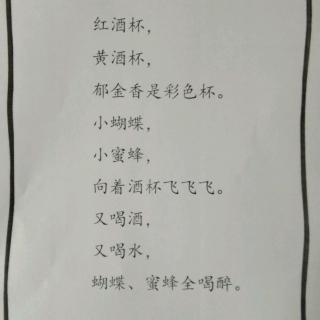 红酒杯，
黄酒杯，
郁金香是彩色杯。
小蝴蝶，
小蜜蜂，
向着酒杯飞飞飞。
又喝酒，
又喝水，
蝴蝶、蜜蜂全喝醉。